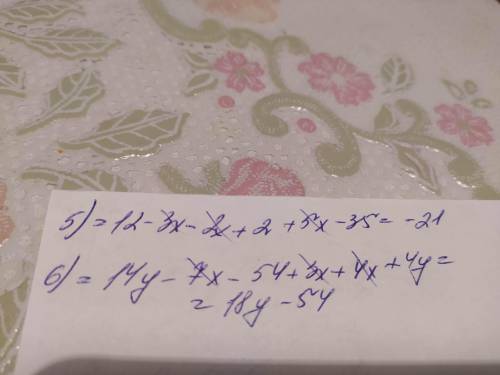 5) = 12 - 3x - 2x + 2 + 5x - 35 = -21
6) = 14y - 7x - 54 + 3x + 4x + 4y =
= 18y - 54